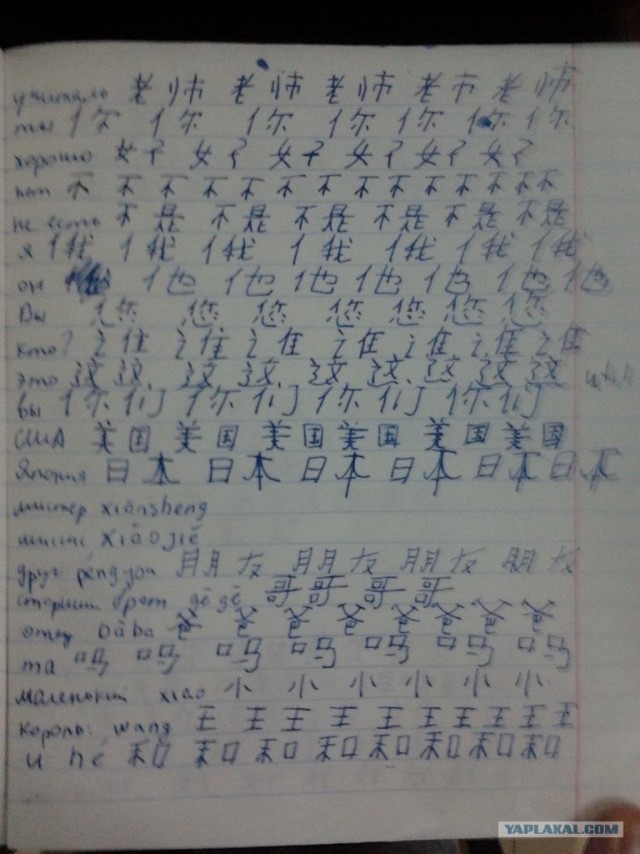 учитель 老师 老师 老师 老市 老师
ты 你 你 你 你 你 你 你
хорошо 好 好 好 好 好 好
нет 不 不 不 不 不 不 不 不 不 不 不 不 不
не есть 不是 不是 不是 不是 不是 不是
я 俄 俄 俄 俄 俄 俄 俄
он 他 他 他 他 他 他 他
Вы 您 您 您 您 您 您 您
кто? 谁 谁 谁 谁 谁 谁 谁
это 这 这 这 这 这 这 这 这 这
вы 你们 你们 你们 你们
США 美国 美国 美国 美国 美国 美国
Япония 日本 日本 日本 日本 日本 日本
мистер xiānsheng
xiǎojiě
друг péngyou 朋友 朋友 朋友 朋友
старший брат gēgē 哥哥 哥 哥
отец bàba 爸 爸 爸 爸 爸 爸 爸
ma 吗 吗 吗 吗 吗 吗
маленький xiao 小 小 小 小 小 小
король: wang 王 王 王 王 王 王 王 王 王 王
и hé 和 和 和 和 和 和 和 和
YAPLAKAL.COM